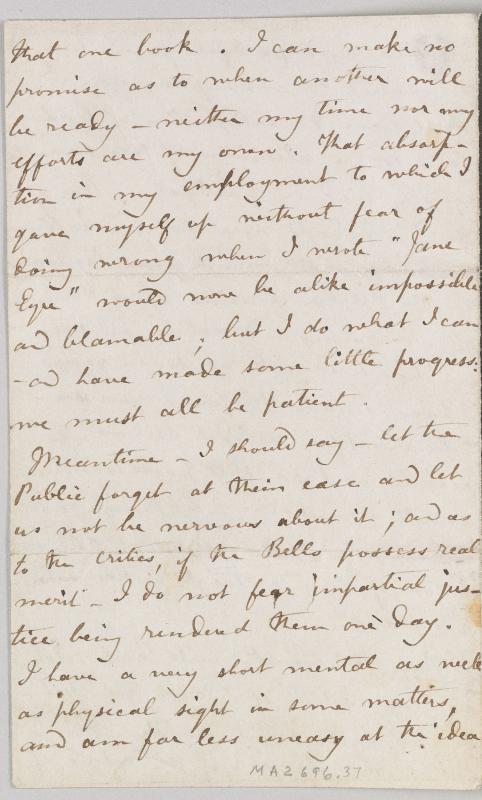 that one book. I can make no
promise as to when another will
be ready – neither my time nor my
efforts are my own. That absorp-
tion in my employment to which I
gave myself up without fear of
doing wrong when I wrote "Jane
Eyre" would now be alike impossible
and blamable; but I do what I can
– and have made some little progress.
we must all be patient.
Meantime – I should say – let the
Public forget at their ease and let
us not be nervous about it; and as
to the critics, if the Bells possess real
merit – I do not fear impartial jus-
tice being rendered them one day.
I have a very short mental as well
as physical sight in some matters,
and am far less uneasy at the idea
MA2696.37